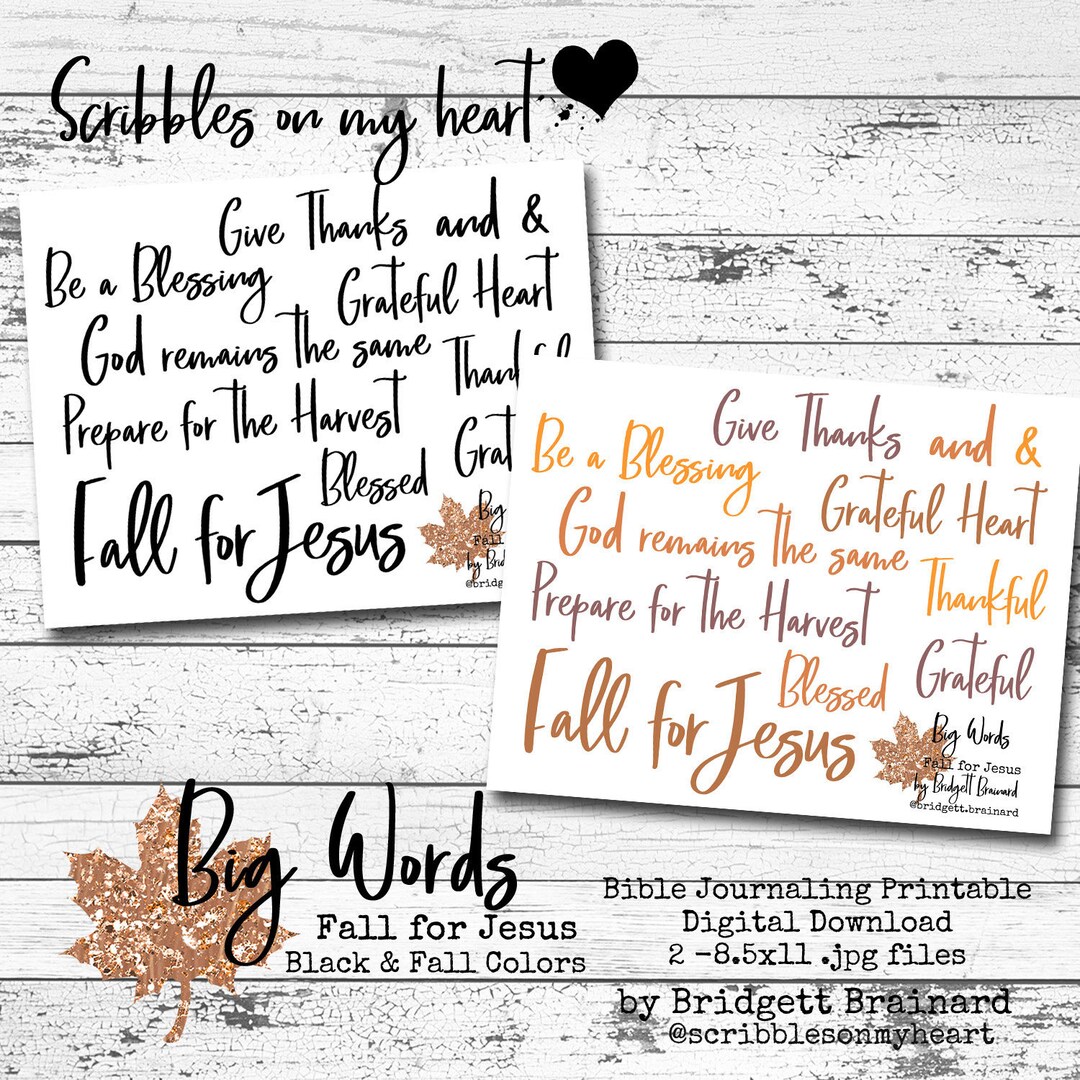 Scribbles on my heart
Give Thanks and &
Be a Blessing
Grateful Heart
God remains the same
Prepare for the Harvest
Blessed
Fall for Jesus
Big
Fall
Give Thanks and &
Be a Blessing
Grateful Heart
God remains the same
Thankful
Prepare for the Harvest
Grateful
Blessed
Fall for Jesus
Big Words
Fall for Jesus
by Bridgett Brainard
@bridgett.brainard
Big Words
Fall for Jesus
Black & Fall Colors
Bible Journaling Printable
Digital Download
2 -8.5x11 .jpg files
by Bridgett Brainard
@scribblesonmyheart